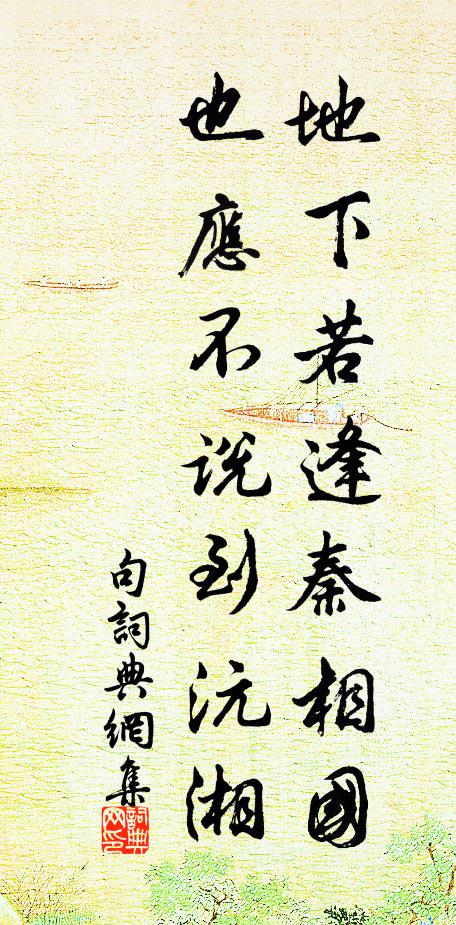 地下若逢秦相國
也應不説到沅湘
句詞典網集
詞典網印